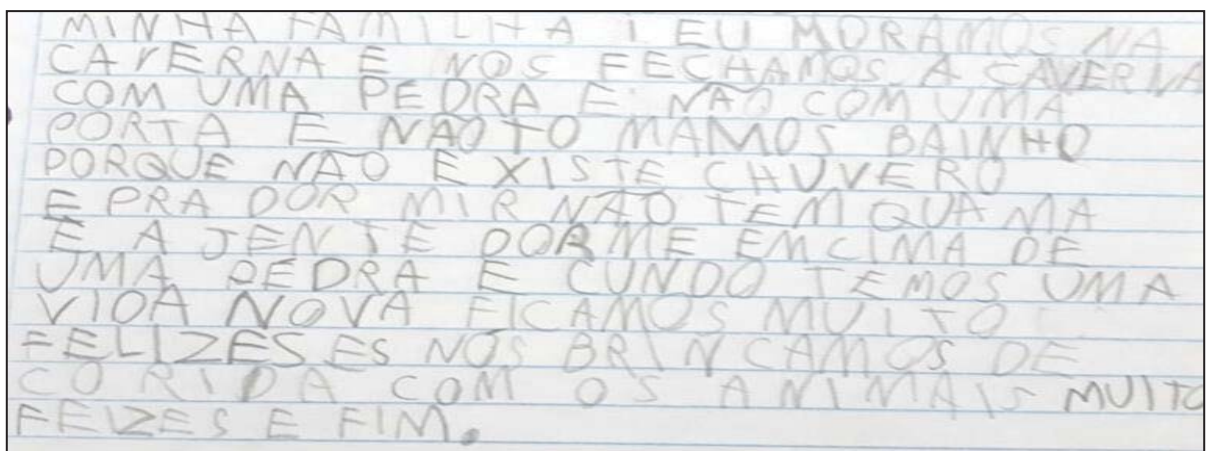 MINHA FAMILHA I EU MORAMOS NA
CAVERNA E NOS FECHAMOS A CAVERNA
COM UMA PEDRA E NÃO COM UMA
PORTA E NÃO TO MAMOS BAINHO
PORQUE NÃO E XISTE CHUVERO
E PRA DOR MIR NÃO TEM QUA MA
E A JENTE DORME EMCIMA DE
UMA PEDRA E CUNDO TEMOS UMA
VIDA NOVA FICAMOS MUITO
FELIZES ES NOS BRINCAMOS DE
CORIDA COM OS ANIMAIS MUITO
FEIZES E FIM.